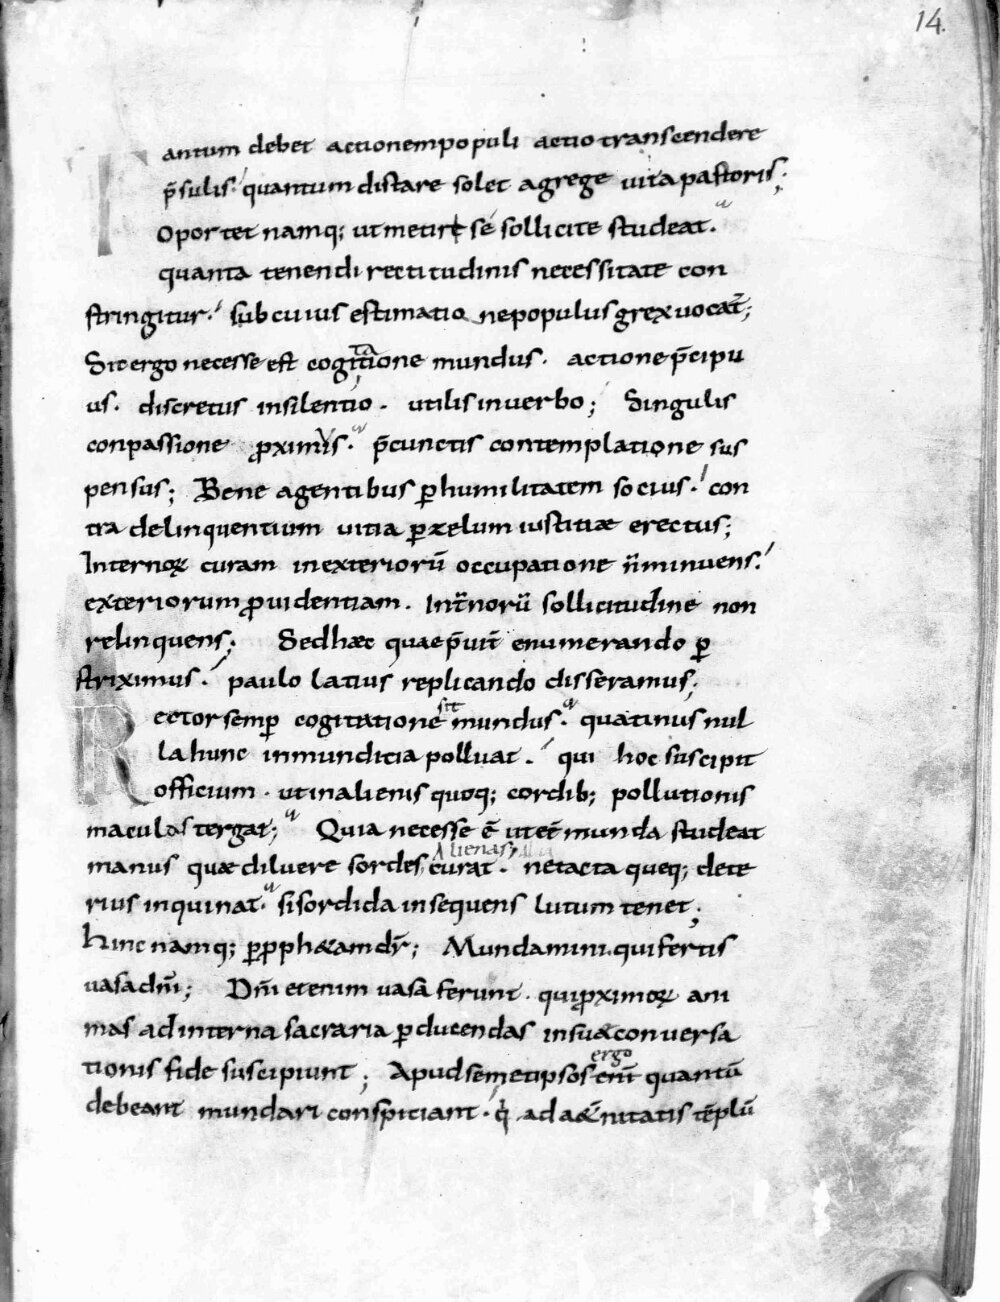 14.
Tantum debet actionem populi actio transcendere
p̄sulis. quantum distare solet a grege vita pastoris;
Oportet namq; ut metiri se sollicite studeat.
quanta tenendi rectitudinis necessitate con
stringitur. sub cuius estimatio ne populus grex vocat̄;
Sit ergo necesse est cogitatione mundus. actione p̄cipu
us. discretus in silentio. utilis in verbo; Singulis
conpassione ꝓximus. p̄ cunctis contemplatione sus
pensus; Bene agentibus ꝑ humilitatem socius. con
tra delinquentium vitia ꝑ zelum iustitiæ erectus;
Internoꝝ curam in exteriorū occupatione n̄ minuens.
exteriorum ꝓvidentiam. Int̄norū sollicitudine non
relinquens; Sed hæc quae p̄uit̄ enumerando ꝑ
striximus. paulo latius replicando disseramus;
Rector semꝑ cogitatione sit mundus. quatinus nul
la hunc inmunditia polluat. qui hoc suscipit
officium. ut in alienis quoq; cordib; pollutionis
maculas tergat; Quia necesse ē ut eēt munda studeat
Alienas
manus quæ diluere sordes curat. ne tacta queq; dete
rius inquinat. si sordida insequens lutum tenet;
hinc namq; ꝑ ꝓph&am dr̄; Mundamini qui fertis
vasa dn̄i; Dn̄i etenim vasa ferunt. qui ꝓximoꝝ ani
mas ad interna sacraria ꝑducendas in sua conversa
tionis fide suscipiunt; Apud semetipsos
ergo
enī quantū
debeant mundari conspitiant. q̇ ad a&̄nitatis tēplū